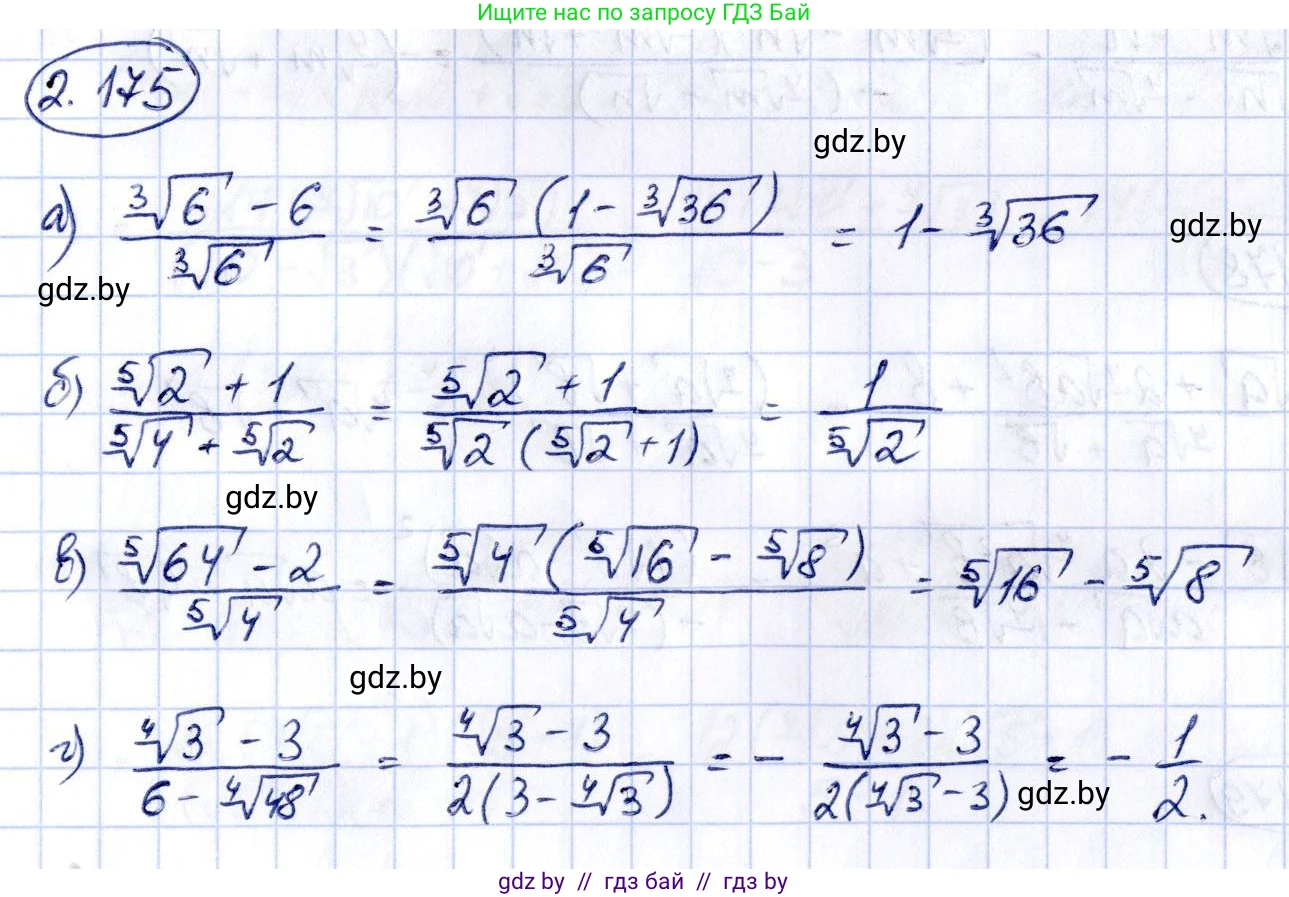 Ищите нас по запросу ГДЗ Бай
2.175
gdz.by
а) (∛6 - 6)/∛6 = ∛6 (1 - ∛36)/∛6 = 1 - ∛36
gdz.by
gdz.by
б) (⁵√2 + 1)/(⁵√4 + ⁵√2) = (⁵√2 + 1)/(⁵√2 (⁵√2 + 1)) = 1/⁵√2
gdz.by
в) (⁵√64 - 2)/⁵√4 = ⁵√4 (⁵√16 - ⁵√8)/⁵√4 = ⁵√16 - ⁵√8
gdz.by
г) (⁴√3 - 3)/(6 - ⁴√48) = (⁴√3 - 3)/(2(3 - ⁴√3)) = - (⁴√3 - 3)/(2(⁴√3 - 3)) = - 1/2.
gdz.by
gdz by // гдз бай // гдз by